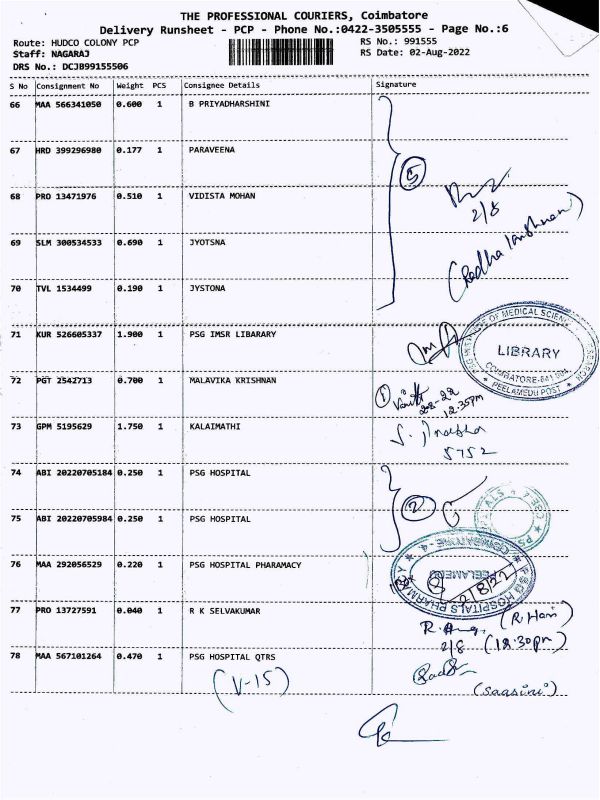 THE PROFESSIONAL COURIERS, Coimbatore
Delivery Runsheet - PCP - Phone No.:0422-3505555 - Page No.:6
Route: HUDCO COLONY PCP
RS No.: 991555
Staff: NAGARAJ
RS Date: 02-Aug-2022
DRS No.: DCJB99155506
S No Consignment No Weight PCS Consignee Details Signature
66 MAA 566341050 0.600 1 B PRIYADHARSHINI
67 HRD 399296980 0.177 1 PARAVEENA
5
68 PRO 13471976 0.510 1 VIDISTA MOHAN
2/8
69 SLM 300534533 0.690 1 JYOTSNA
70 TVL 1534499 0.190 1 JYSTONA
71 KUR 526605337 1.900 1 PSG IMSR LIBARARY
INSTITUTE OF MEDICAL SCIENCE
LIBRARY
COIMBATORE-641 004
PEELAMEDU POST
72 PGT 2542713 0.700 1 MALAVIKA KRISHNAN
1
12.35pm
73 GPM 5195629 1.750 1 KALAIMATHI
5752
74 ABI 20220705184 0.250 1 PSG HOSPITAL
2
75 ABI 20220705984 0.250 1 PSG HOSPITAL
76 MAA 292056529 0.220 1 PSG HOSPITAL PHARAMACY
PSG HOSPITALS PHARMACY
PEELAMEDU
COIMBATORE - 4
2/8/22
77 PRO 13727591 0.040 1 R K SELVAKUMAR
(R. Hari)
2/8
78 MAA 567101264 0.470 1 PSG HOSPITAL QTRS
(V-15)
(Saasini)